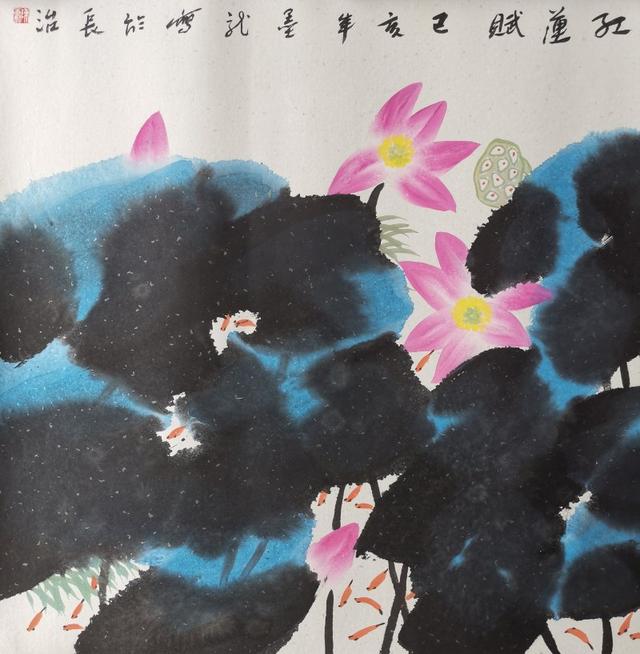 红蓮賦己亥年墨龙寫於長治